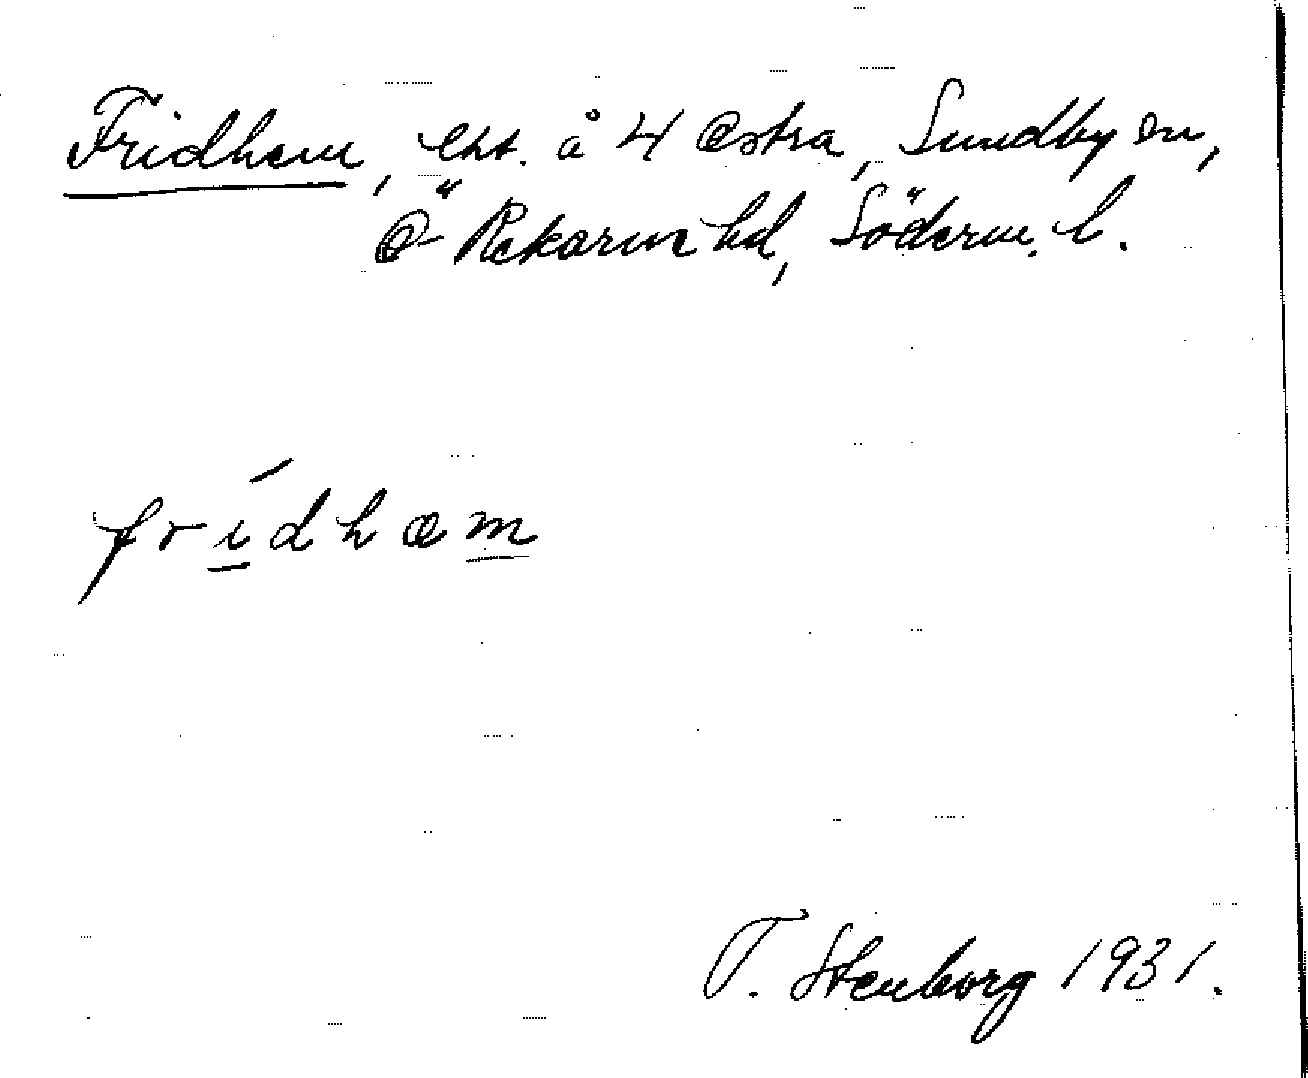 Fridhem, lht. å 4 Östra, Sundby sn,
Ö Rekarne hd, Söderm. l.
frídhæm
T. Stenborg 1931.